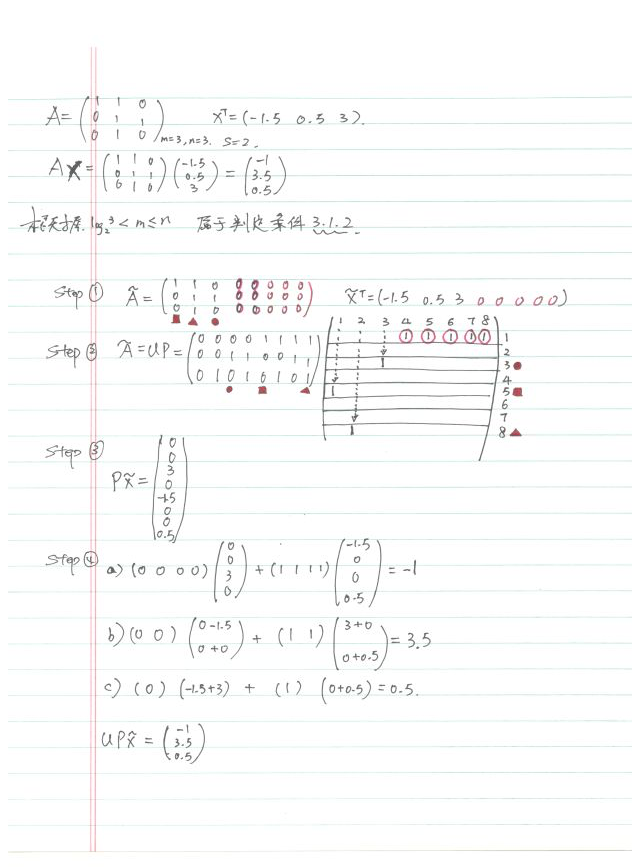 A = (1 1 0 / 0 1 1 / 0 1 0) m=3, n=3. S=2. xᵀ=(-1.5 0.5 3).
Ax = (1 1 0 / 0 1 1 / 0 1 0) (-1.5 / 0.5 / 3) = (-1 / 3.5 / 0.5)
log₂³ < m ≤ n 属于判定条件 3.1.2.
Step ① Ã = (1 1 0 0 0 0 0 0 / 0 1 1 0 0 0 0 0 / 0 1 0 0 0 0 0 0) x̃ᵀ=(-1.5 0.5 3 0 0 0 0 0)
1 2 3 4 5 6 7 8
Step ② Ã=UP= (0 0 0 0 1 1 1 1 / 0 0 1 1 0 0 1 1 / 0 1 0 1 0 1 0 1)
1 1 1 1 1 1
2
1 3
4
1 5
6
7
1 8
Step ③ Px̃ = (0 / 0 / 3 / 0 / -1.5 / 0 / 0 / 0.5)
Step ④ a) (0 0 0 0) (0 / 0 / 3 / 0) + (1 1 1 1) (-1.5 / 0 / 0 / 0.5) = -1
b) (0 0) (0-1.5 / 0+0) + (1 1) (3+0 / 0+0.5) = 3.5
c) (0) (-1.5+3) + (1) (0+0.5) = 0.5.
UPx̃ = (-1 / 3.5 / 0.5)